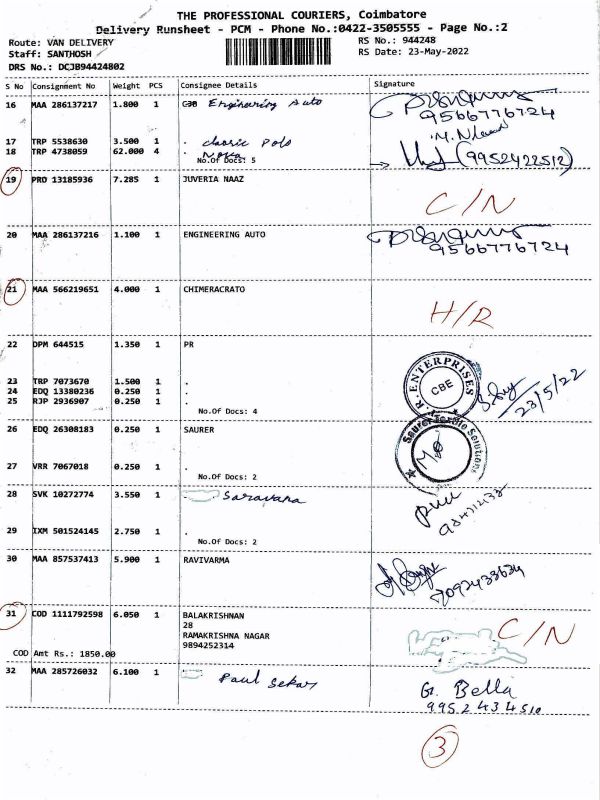 THE PROFESSIONAL COURIERS, Coimbatore
Delivery Runsheet - PCM - Phone No.:0422-3505555 - Page No.:2
Route: VAN DELIVERY RS No.: 944248
Staff: SANTHOSH RS Date: 23-May-2022
DRS No.: DCJB94424802
S No Consignment No Weight PCS Consignee Details Signature
16 MAA 286137217 1.800 1 Engineering Auto
9566776724
17 TRP 5538630 3.500 1 . Classic Polo
18 TRP 4738059 62.000 4 . (9952422512)
No.Of Docs: 5
19 PRD 13185936 7.285 1 JUVERIA NAAZ
C/N
20 MAA 286137216 1.100 1 ENGINEERING AUTO
9566776724
21 MAA 566219651 4.000 1 CHIMERACRATO
H/R
22 DPM 644515 1.350 1 PR
R. ENTERPRISES
CBE
23 TRP 7073670 1.500 1 .
24 EDQ 13380236 0.250 1 . 23/5/22
25 RJP 2936907 0.250 1 .
No.Of Docs: 4
26 EDQ 26308183 0.250 1 SAURER
Saurer Textile Solutions
27 VRR 7067018 0.250 1 .
No.Of Docs: 2
28 SVK 10272774 3.550 1 Saravana
29 IXM 501524145 2.750 1 .
No.Of Docs: 2
30 MAA 857537413 5.900 1 RAVIVARMA
31 COD 1111792598 6.050 1 BALAKRISHNAN
28
RAMAKRISHNA NAGAR
9894252314
C/N
COD Amt Rs.: 1850.00
32 MAA 285726032 6.100 1 Paul Sekar
G. Bella
9952434510
3